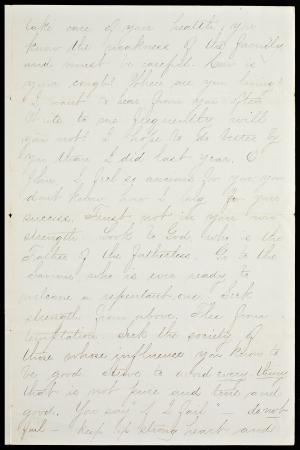 take care of your health, you
know the weakness of the family
and must be careful. How is
your cough? Where are you living?
I want to hear from you often
Write to me frequently will
you not? I hope to do better by
you than I did last year. O
how I feel so anxious for you you
don't know how I for your
success. Trust not in your own
strength. Look to God, who is the
Father of the fatherless. Go to the
Saviour who is ever ready to
welcome a repentant one. Seek
strength from above. Flee from
temptation. Seek the society of
those whose influence you know to
be good. Strive to avoid every thing
that is not pure and true and
good. You say "if I fail" - do not
fail - keep up strong heart and